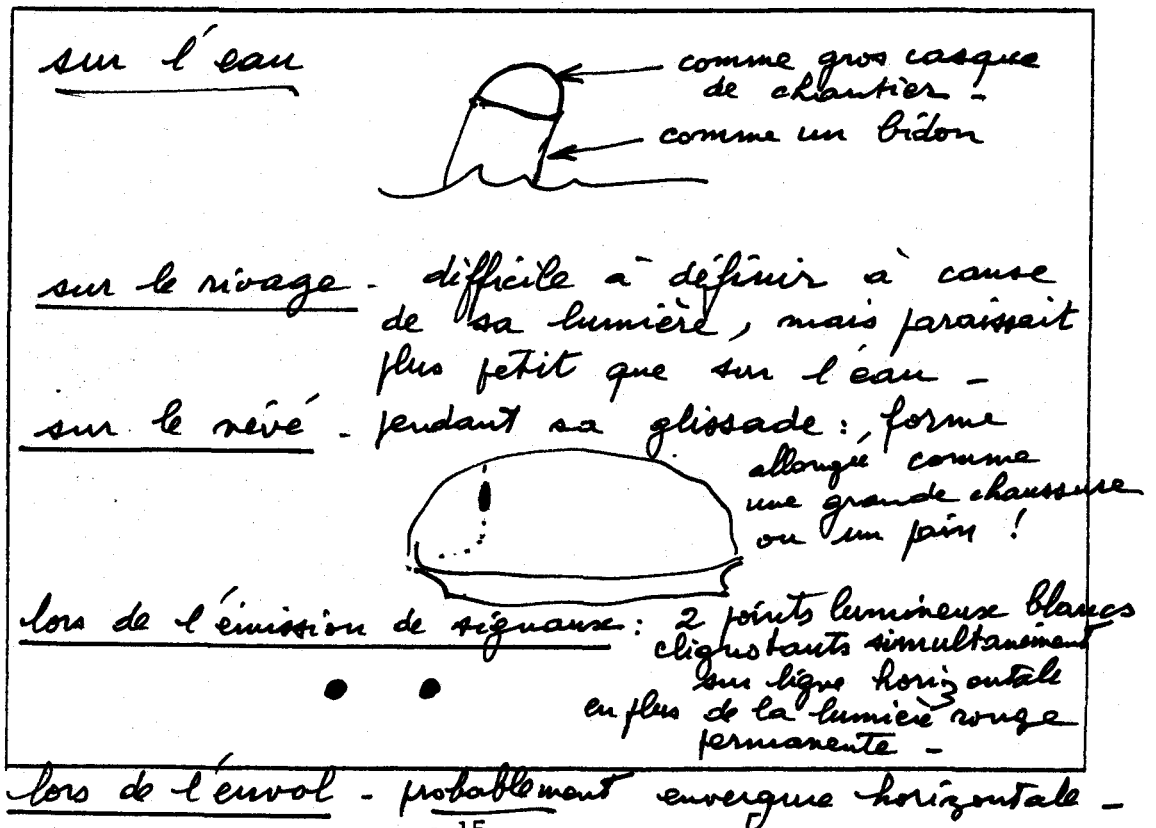 sur l'eau
comme gros casque
de chantier -
comme un bidon
sur le rivage - difficile à définir à cause
de sa lumière, mais paraissait
plus petit que sur l'eau -
sur le névé - pendant sa glissade : forme
allongée comme
une grande chaussure
ou un pain !
lors de l'émission de signaux : 2 points lumineux blancs
clignotants simultanément
sur ligne horizontale
en plus de la lumière rouge
permanente -
lors de l'envol - probablement envergure horizontale -
15